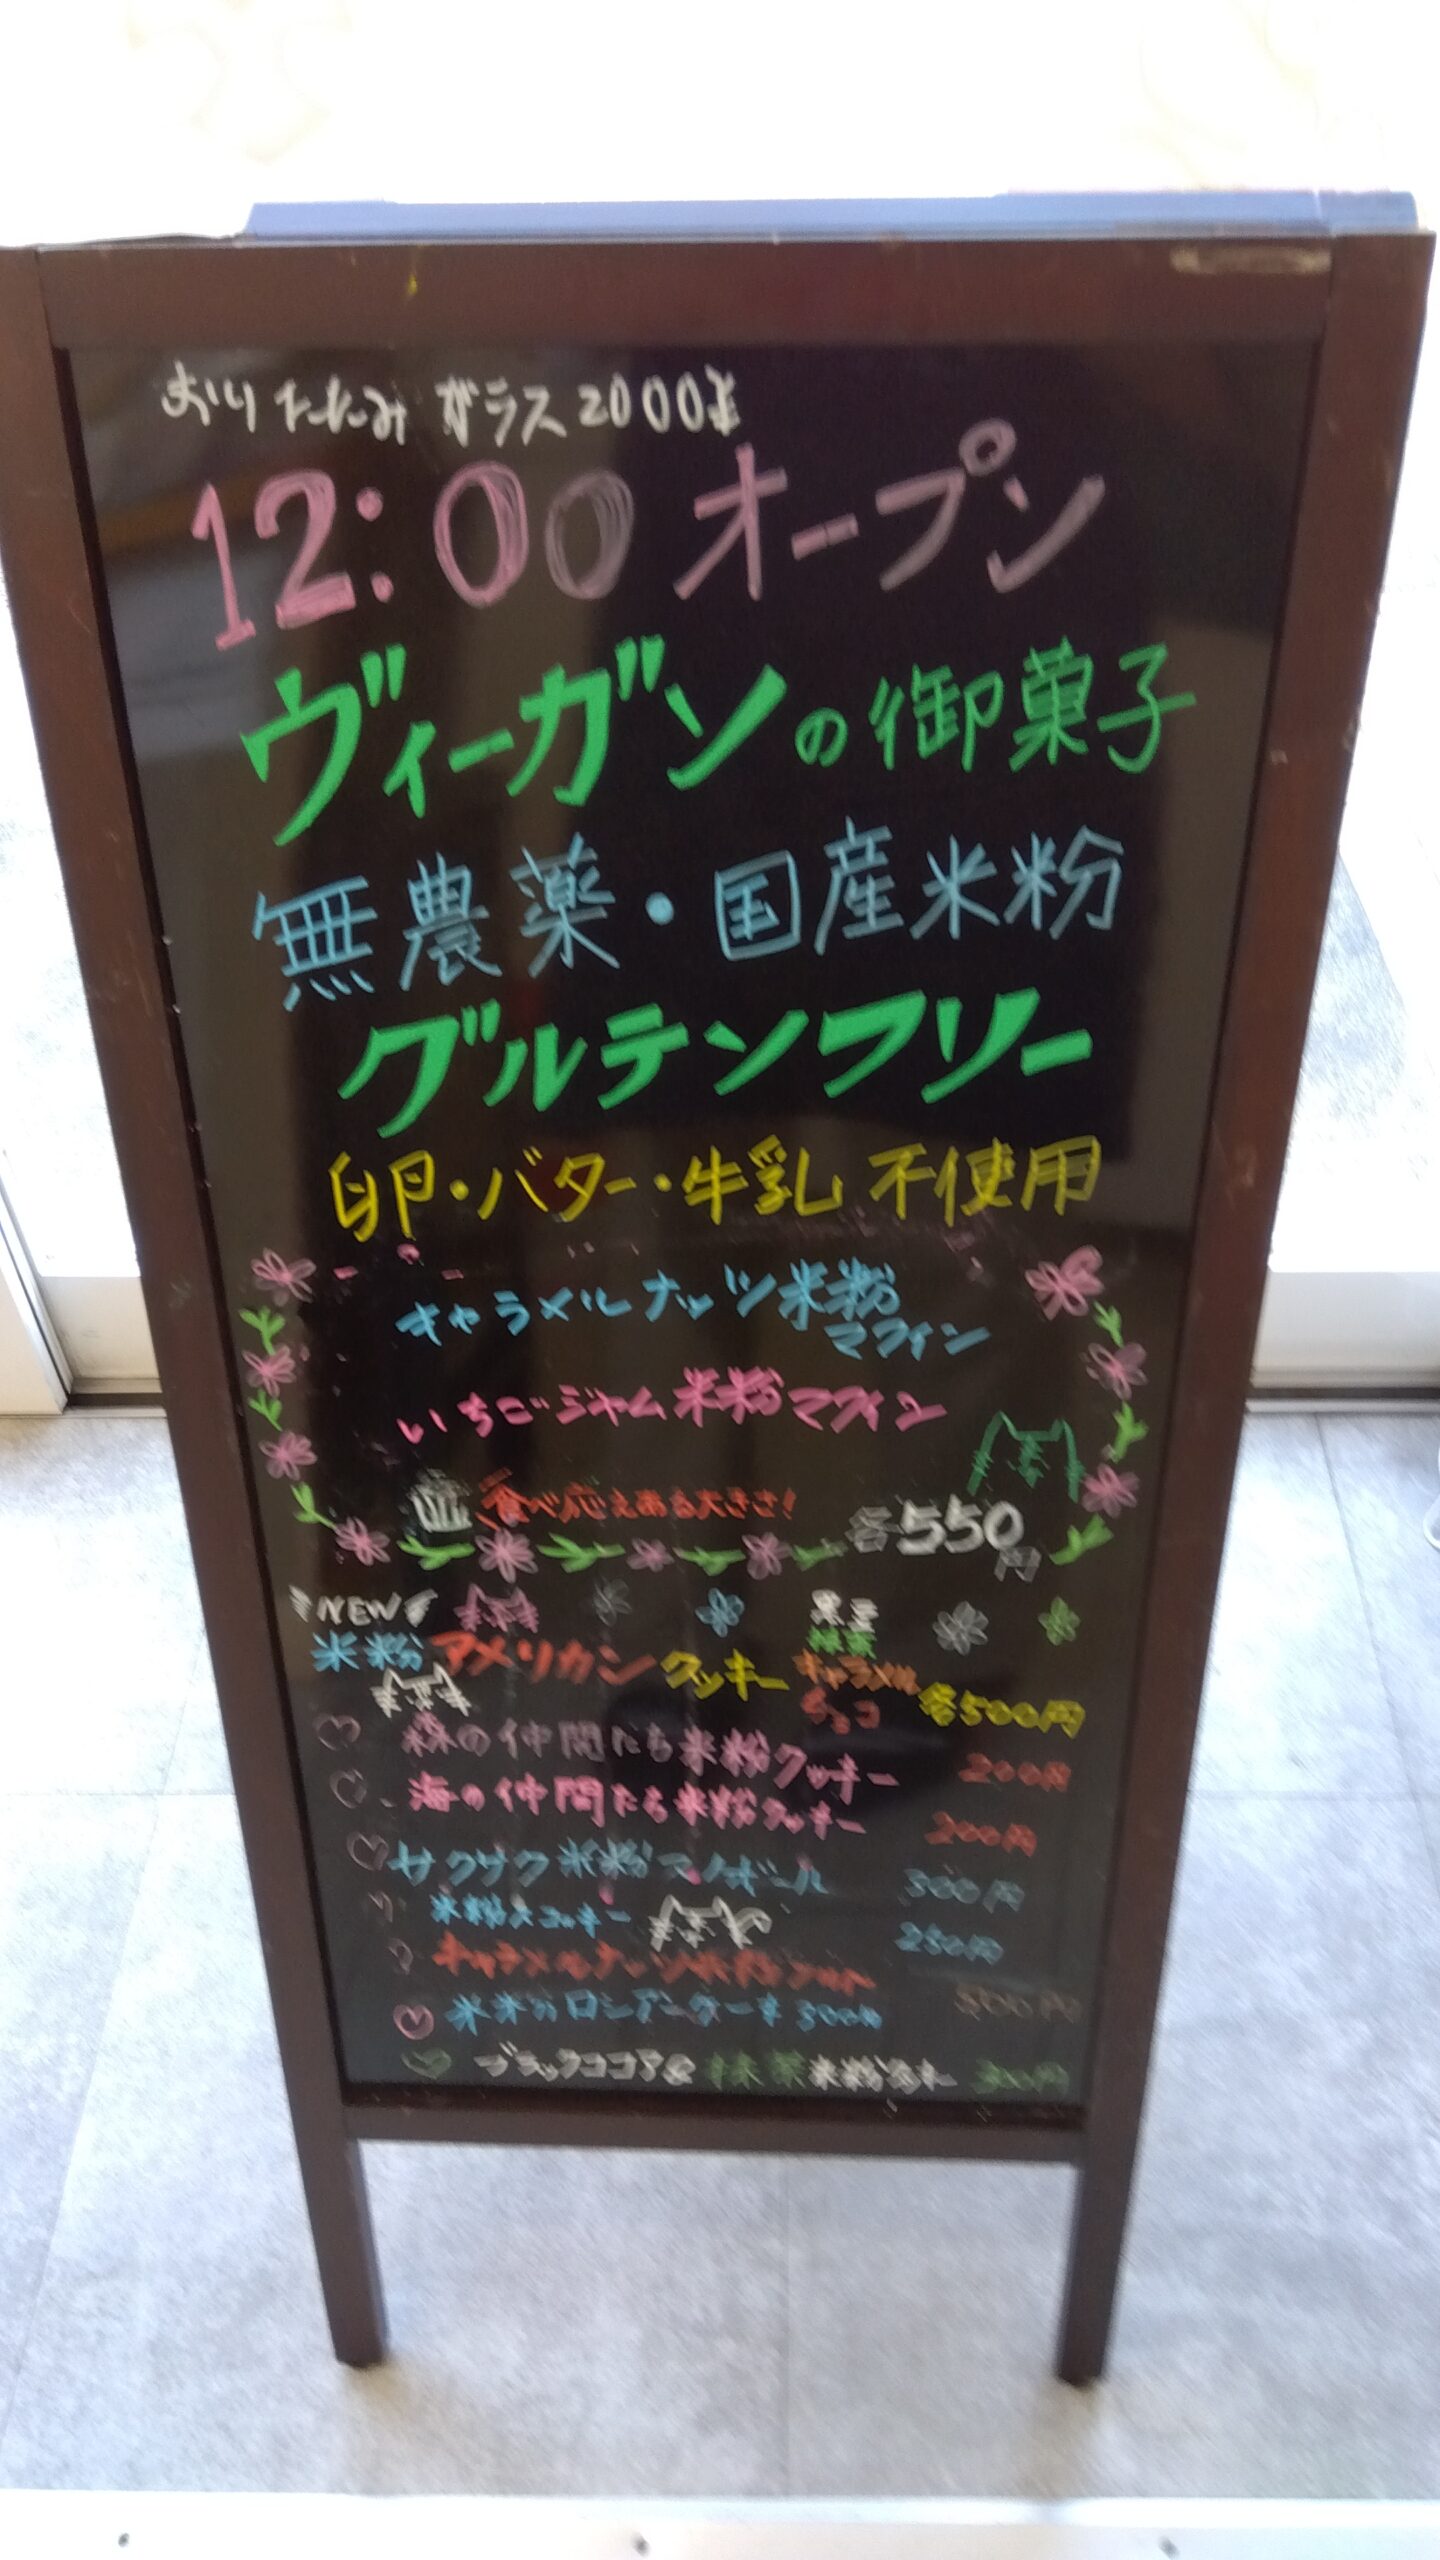 おりたたみガラス2000まい
12:00 オープン
ヴィーガンの御菓子
無農薬・国産米粉
グルテンフリー
卵・バター・牛乳 不使用
キャラメルナッツ米粉
マフィン
いちごジャム米粉マフィン
食べ応えある大きさ! 各550円
NEW 黒豆
抹茶
米粉アメリカンクッキー キャラメル
チョコ 各500円
森の仲間たち米粉クッキー 200円
海の仲間たち米粉クッキー 200円
サクサク米粉 ボール 300円
米粉スコッキー 250円
キャラメルナッツ米粉 500円
ロシアンケーキ 300円
ブラックココア& 抹茶 米粉 300円